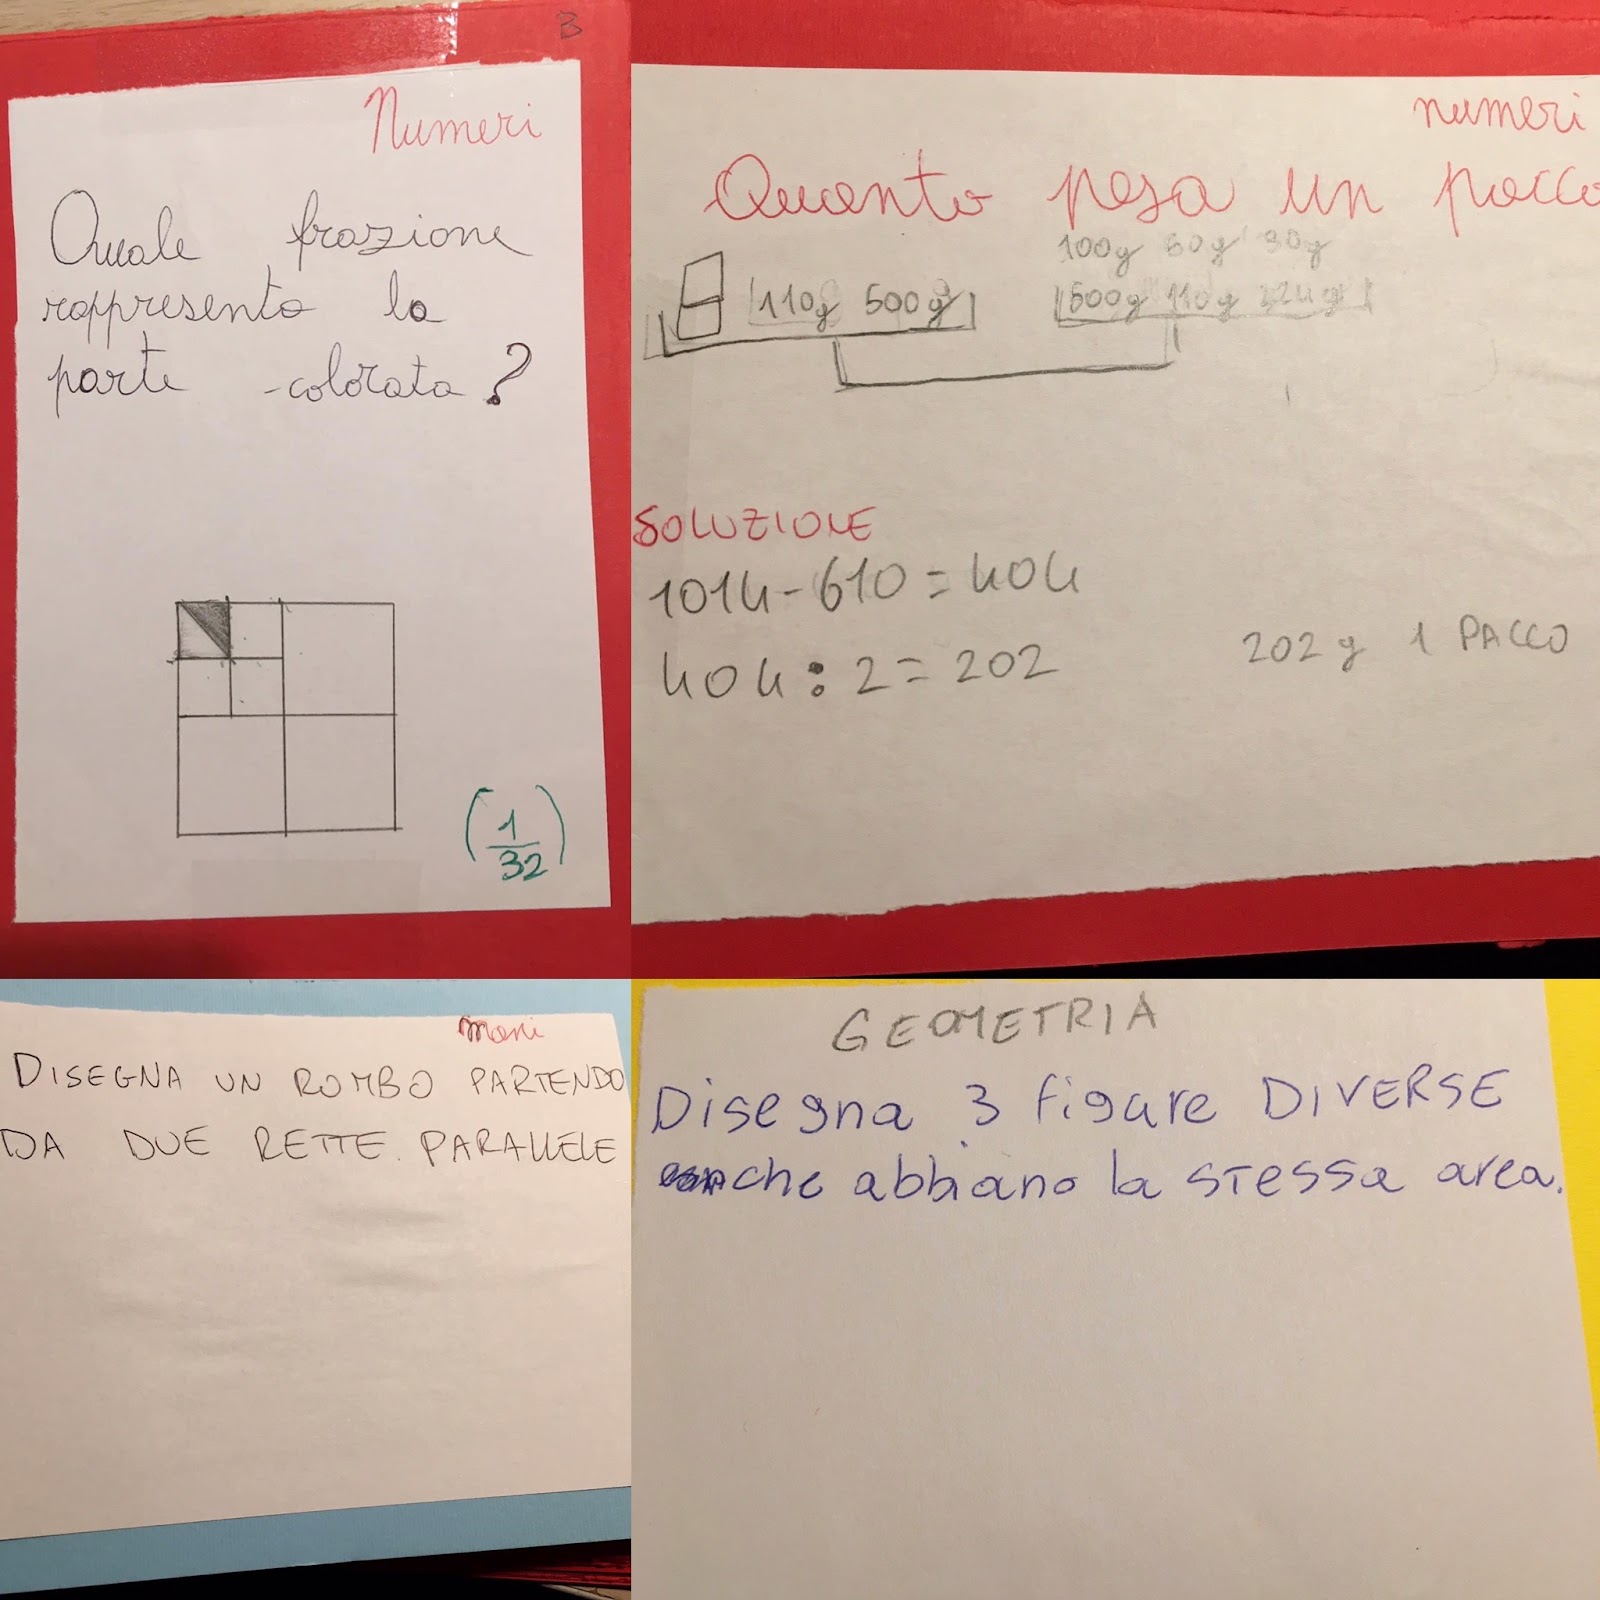 B
Numeri
Quale frazione
rappresenta la
parte colorata?
(1/32)
numeri
Quanto pesa un pacco
100g 50g 30g
110g 500g 500g 110g 224g
SOLUZIONE
1014-610=404
404:2=202 202g 1 PACCO
mani
DISEGNA UN ROMBO PARTENDO
DA DUE RETTE PARALLELE
GEOMETRIA
Disegna 3 figure DIVERSE
che abbiano la stessa area.